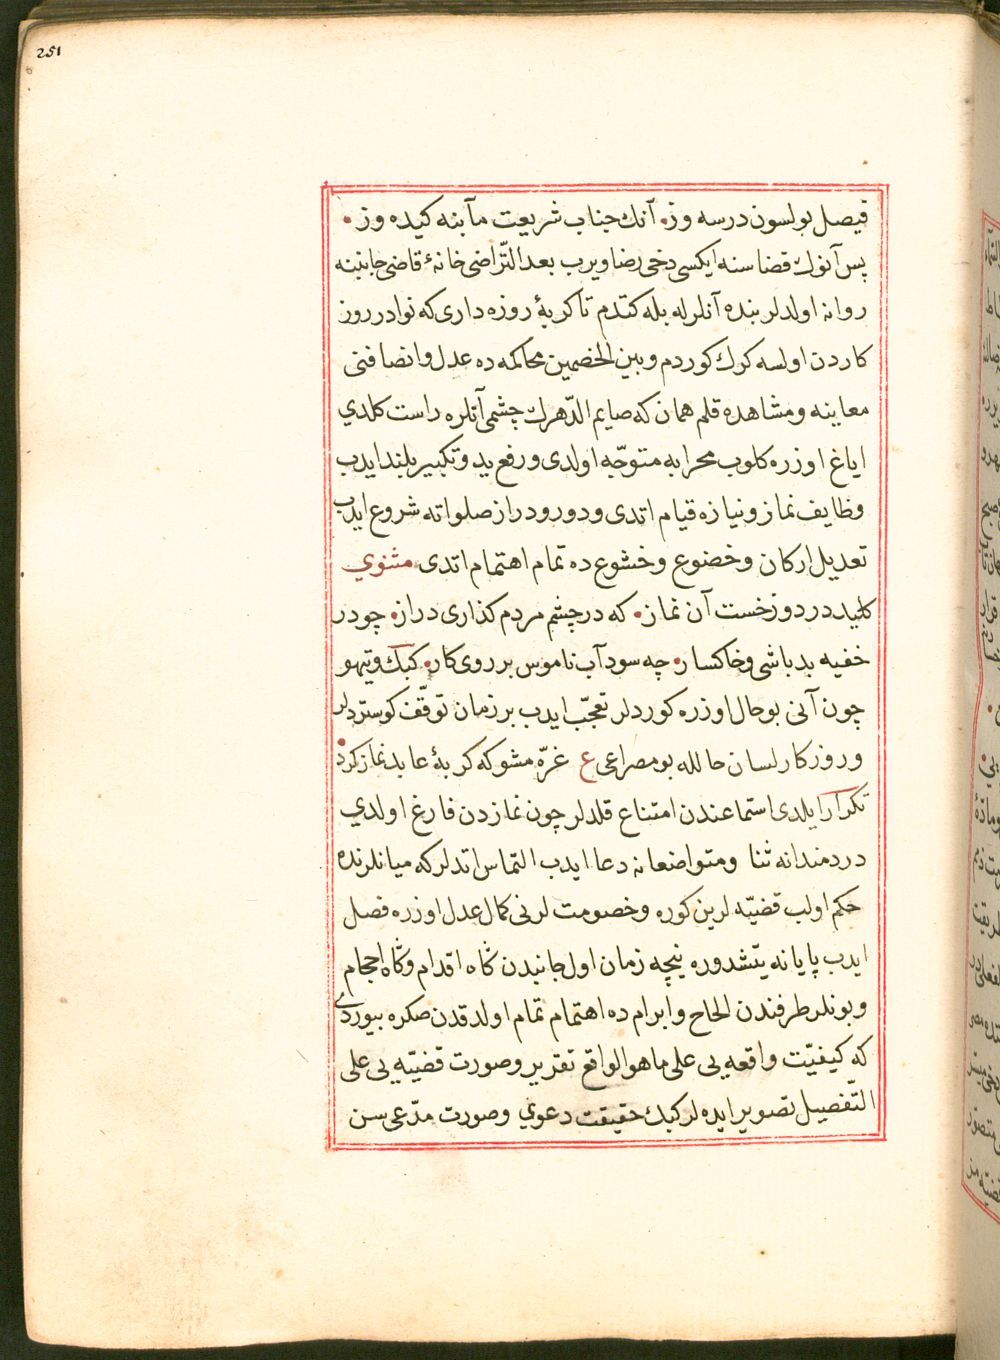 251
فيصل بولسون درسه وز. آنك جناب شريعت مآبنه كيده وز.
پس آنوك قضاسنه ايكسى دخى رضا ويرب بعد التّراضى خانۀ قاضى جانبنه
روانه اولدلر بنده آنلرله بله كتدم تا كربۀ روزه دارى كه نوادر روز
كاردن اولسه كرك كوردم و بين الخصمين محاكمه ده عدل و انصافنى
معاينه و مشاهده قلم همان كه صايم الدّهرك چشمى آنلره راست كلدي
اياغ اوزره كلوب محرابه متوجّه اولدى و رفع يد و تكبير بلند ايدب
وظايف نماز و نيازه قيام اتدى و دور و دراز صلواته شروع ايدب
تعديل اركان و خضوع و خشوع ده تمام اهتمام اتدى. مثنوي
كليد در دوزخست آن نماز. كه در چشم مردم كذارى دراز. چو در
خفيه بد باشى و خاكسار. چه سود آب ناموس بر روى كار. كبك و تيهو
چون آنى بو حال اوزره كوردلر تعجّب ايدب بر زمان توقّف كوستردلر
و روزكار لسان حالله بو مصراعى ع غرّه مشو كه كربۀ عابد نماز كرد.
تكرار ايلدى استماعندن امتناع قلدلر چون نمازدن فارغ اولدي
دردمندانه ثنا و متواضعانه دعا ايدب التماس اتدلر كه ميانلرنده
حكم اولب قضيّه لرين كوره و خصومت لرنى كمال عدل اوزره فصل
ايدب پايانه يتشدوره نيچه زمان اول جانبدن گاه اقدام و گاه احجام
و بونلر طرفندن الحاح و ابرام ده اهتمام تمام اولدقدن صكره بيوردى
كه كيفيّت واقعه يى على ما هو الواقع تقرير و صورت قضيّه يى على
التّفصيل تصوير ايده لر كبك حقيقت دعوي و صورت مدّعى سن